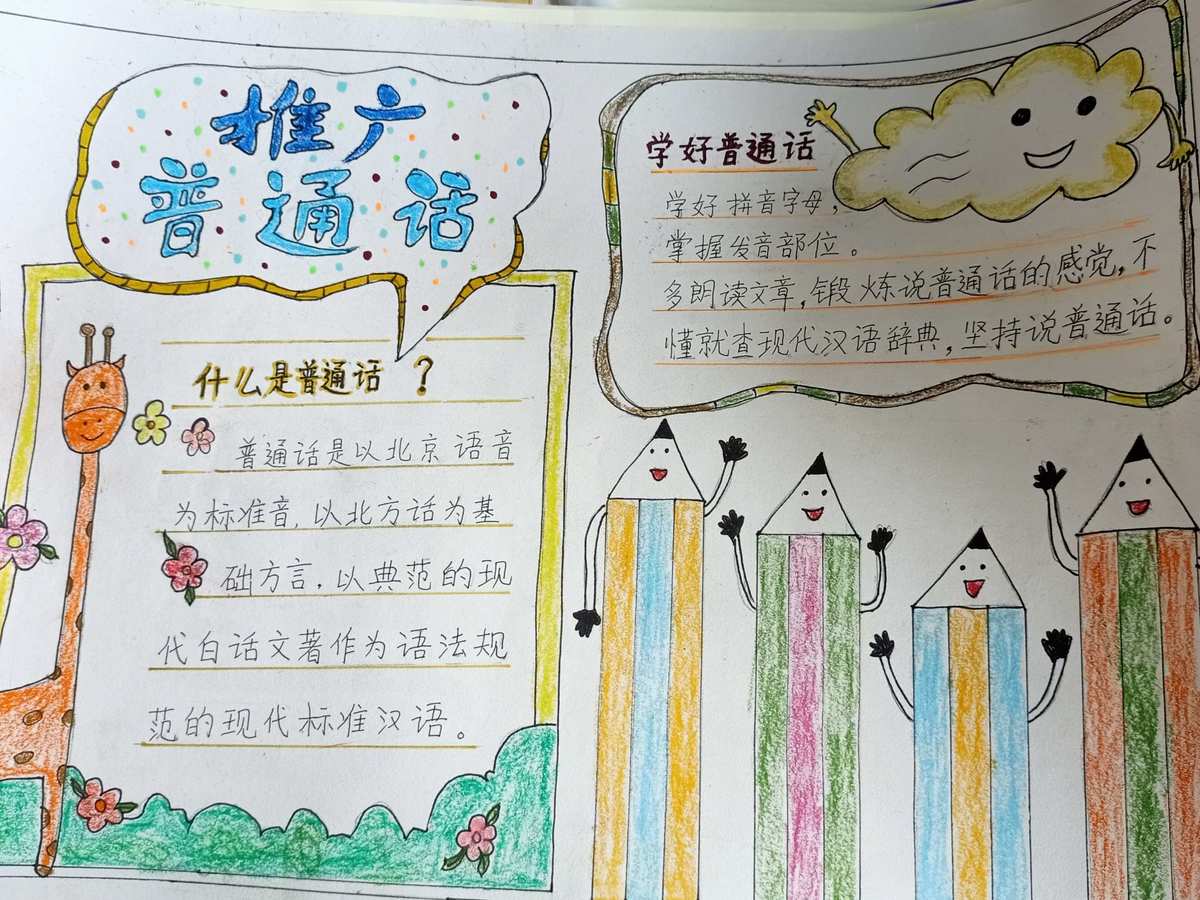 推广
普通话
什么是普通话？
普通话是以北京语音
为标准音，以北方话为基
础方言，以典范的现
代白话文著作为语法规
范的现代标准汉语。
学好普通话
学好拼音字母，
掌握发音部位。
多朗读文章，锻炼说普通话的感觉，不
懂就查现代汉语辞典，坚持说普通话。